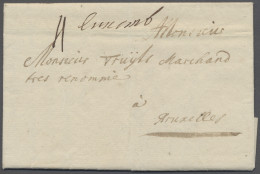 Luxemb
Monsieur
Monsieur Truÿts Marchand
tres renommé
à
Bruxelles